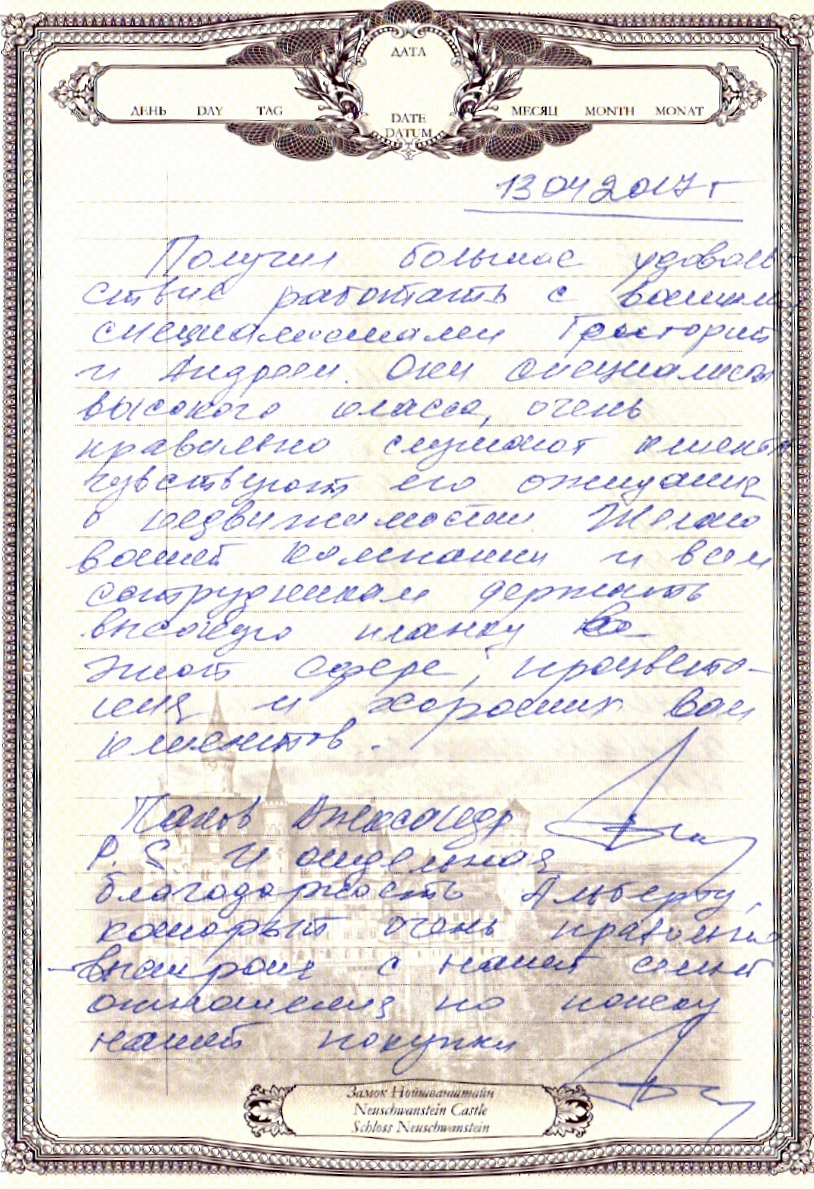 ДАТА
ДЕНЬ DAY TAG
DATE
DATUM
МЕСЯЦ MONTH MONAT
13 04 2017 г
Получил большое удоволь-
ствие работать с вашими
специалистами Григорий
и Андреем. Они специалисты
высокого класса, очень
правильно слушают клиента
чувствуют его ожидания
о недвижимости. Желаю
вашей компании и всем
сотрудникам держать
высокую планку во
этой сфере, процвета-
ния и хороших вам
клиентов.
Панов Александр
P. S. И отдельная
благодарность Альберту,
который очень правильно
выстроил с нашей семьёй
отношения по поиску
нашей покупки
Замок Нойшванштайн
Neuschwanstein Castle
Schloss Neuschwanstein